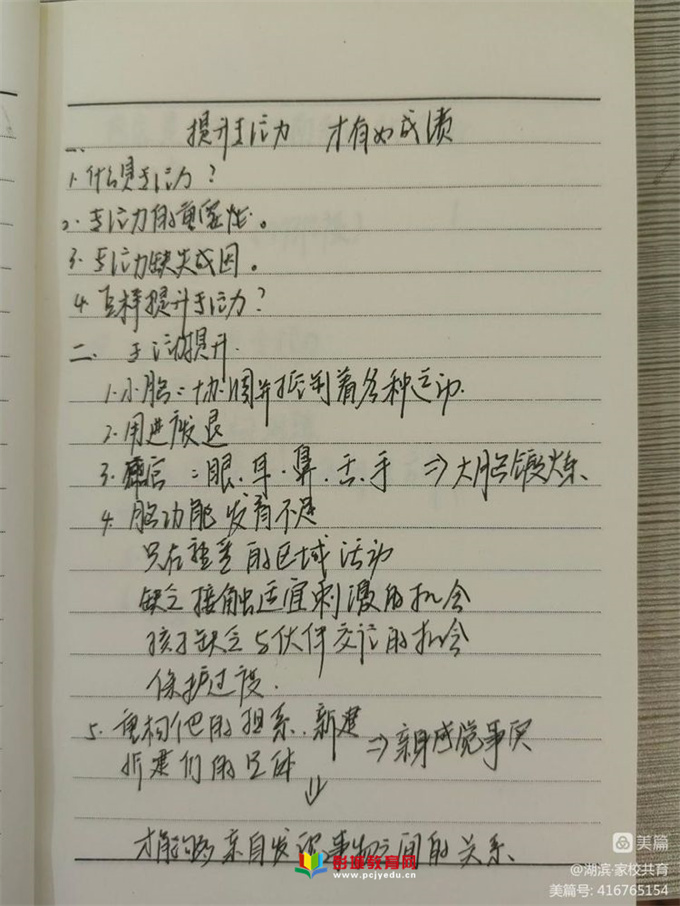 一、 提升专注力 才有好成绩
1. 什么是专注力？
2. 专注力的重要性。
3. 专注力缺失成因。
4. 怎样提升专注力？
二、 专注力提升
1. 小脑：协调并控制着各种运动.
2. 用进废退
3. 器官：眼.耳.鼻.舌.手 ⇒ 大脑锻炼、
4. 脑功能发育不足
只在 的区域活动
缺乏接触适宜刺激的机会
孩子缺乏与伙伴交往的机会
保护过度.
5. 重构他的 系.新建 ⇒ 亲身感觉事实
们的 体 ⇓
才能够亲自发现事物之间的关系、
彭雄教育网
www.pcjyedu.cn
美篇
@湖滨·家校共育
美篇号: 416765154